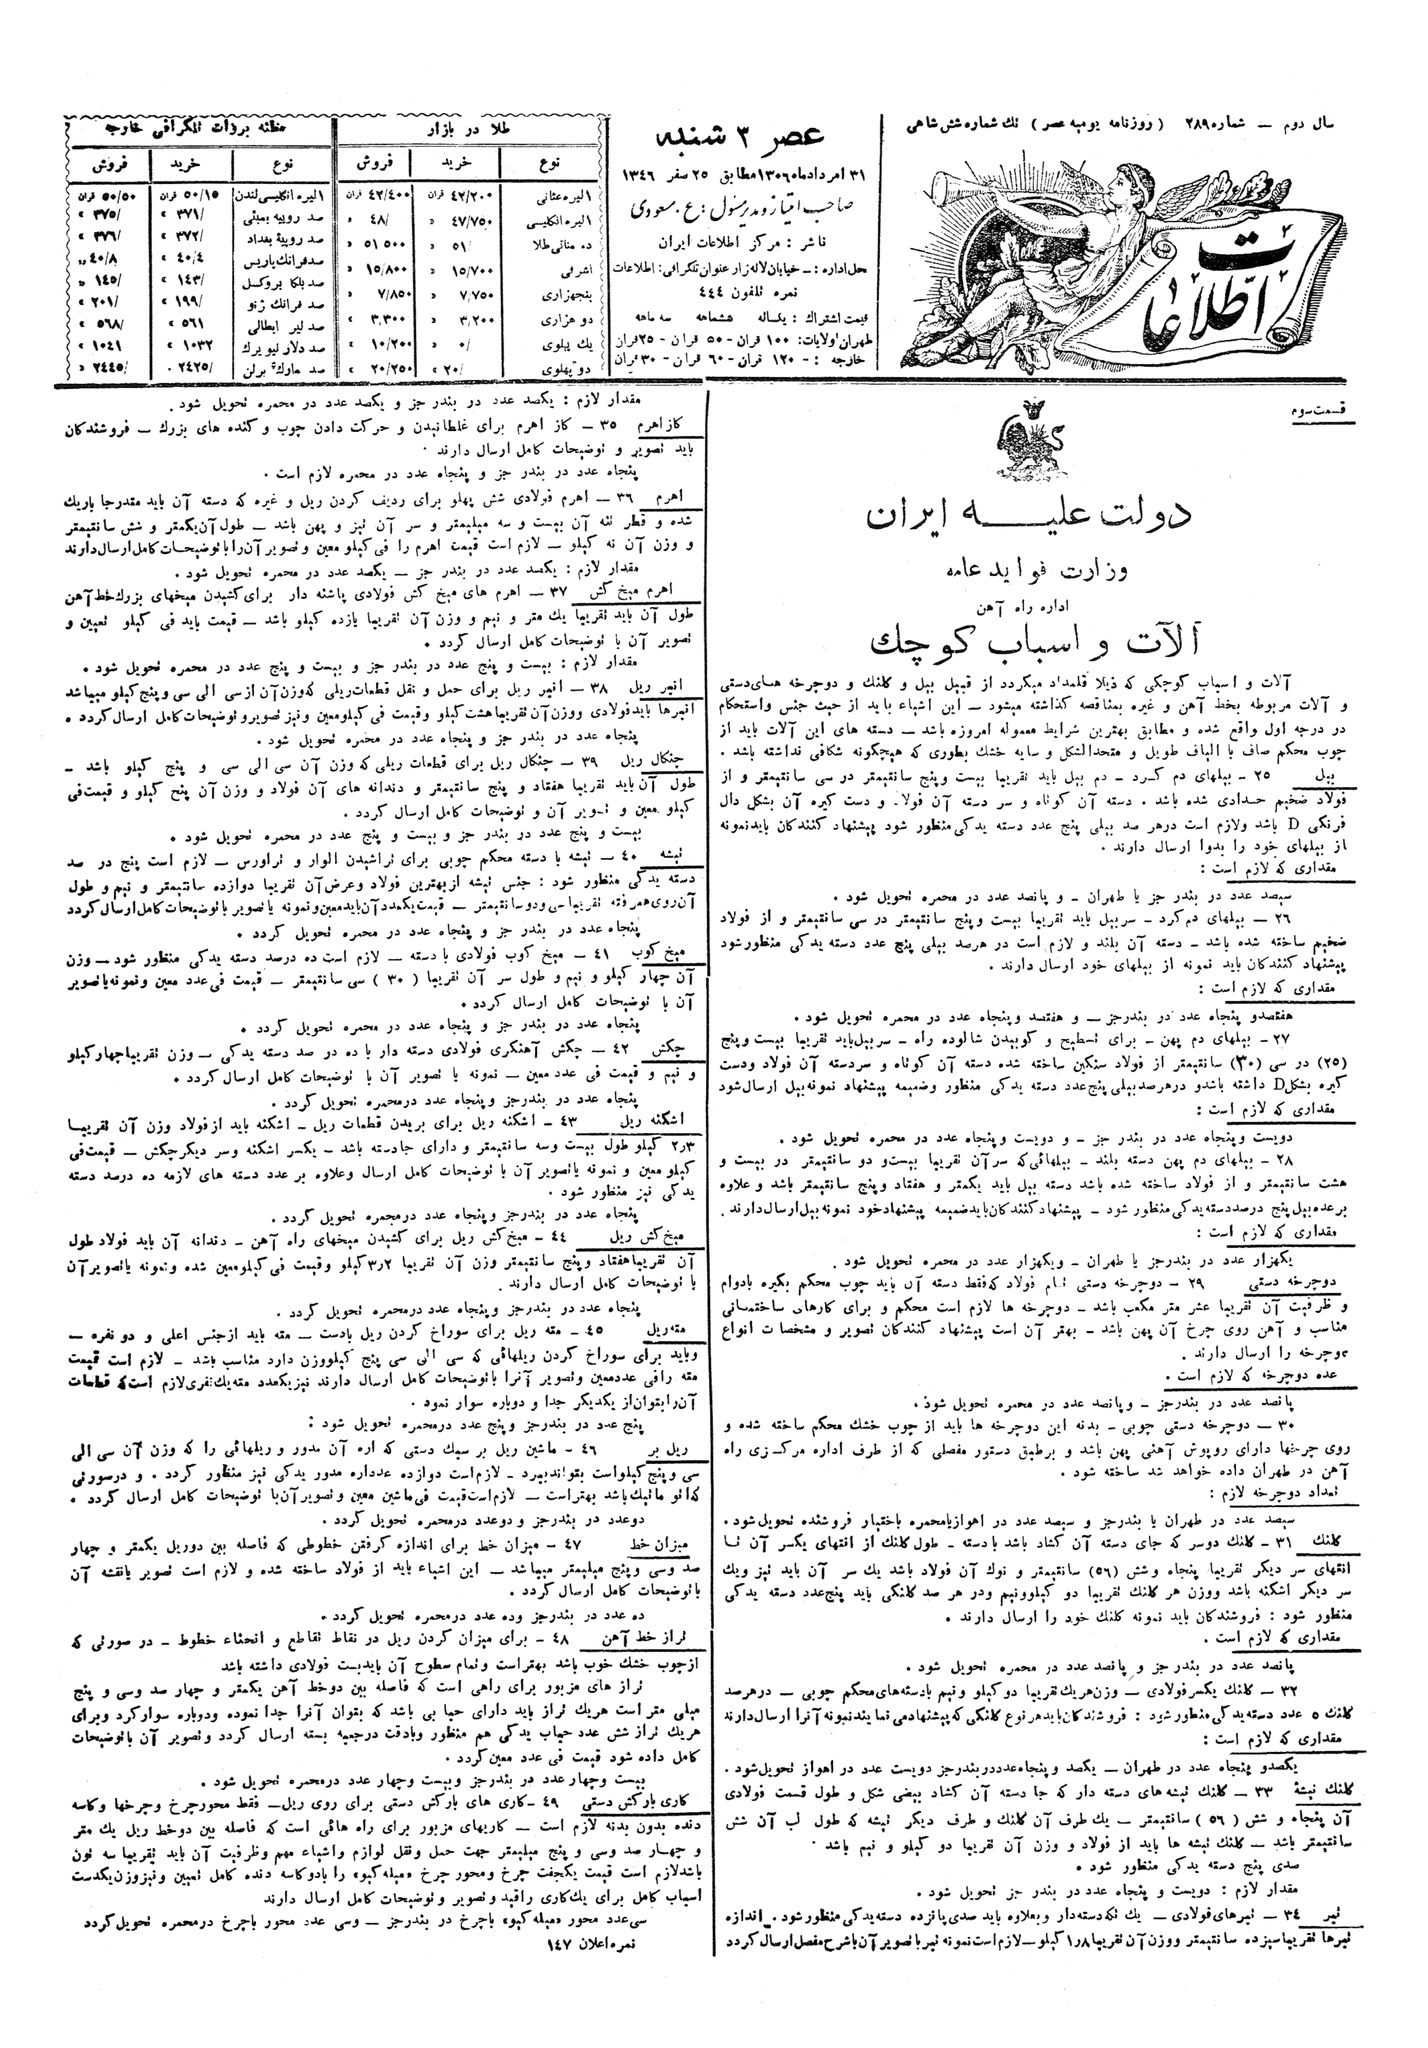 سال دوم — شماره ۲۸۹ (روزنامه یومیه عصر) تك شماره شش شاهی
اطلاعات
عصر ۳ شنبه
۳۱ امرداد ماه ۱۳۰۶ مطابق ۲۵ صفر ۱۳٤٦
صاحب امتیاز و مدیر مسئول : ع . مسعودی
ناشر : مرکز اطلاعات ایران
محل اداره : ـ خیابان لاله زار عنوان تلگرافی: اطلاعات
نمره تلفون ٤٤٤
قیمت اشتراك : یکساله ششماهه سه ماهه
طهران ولایات: ۱۰۰ قران - ۵۰ قران - ۲۵ قران
خارجه : - ۱۲۰ قران - ۶۰ قران - ۳۰ قران
طلا در بازار
نوع خرید فروش
۱ لیره عثمانی ٤۲/۲۰۰ قران ٤۲/٤۰۰ قران
۱ لیره انگلیسی ٤۷/۷۵۰ » ٤۸/ »
ده مناتی طلا ۵۱/ » ۵۱ ۵۰۰ »
اشرفی ۱۵/۷۰۰ » ۱۵/۸۰۰ »
پنجهزاری ۷/۷۵۰ » ۷/۸۵۰ »
دو هزاری ۳,۲۰۰ » ۳,۳۰۰ »
یك پهلوی ۰/ » ۱۰/۲۰۰ »
دو پهلوی ۲۰/ » ۲۰/۲۵۰ »
مظنه بروات تلگرافی خارجه
نوع خرید فروش
۱ لیره انگلیسی لندن ۵۰/۱۵ قران ۵۰/۵۰ قران
صد روپیه بمبئی ۳۷۱/ » ۳۷۵/ »
صد روپیه بغداد ۳۷۲/ » ۳۷٦/ »
صد فرانك پاریس ٤۰/٤ » ٤۰/۸ »
صد بلگا بروکسل ۱٤۳/ » ۱٤۵/ »
صد فرانك ژنو ۱۹۹/ » ۲۰۱/ »
صد لیر ایطالی ۵٦۱ » ۵٦۸/ »
صد دلار نیویرك ۱۰۳۲ » ۱۰٤۱ »
صد مارك برلن ۲٤۲۵/ . ۲٤٤۵/ »
قسمت سوم
دولت علیه ایران
وزارت فواید عامه
اداره راه آهن
آلات و اسباب کوچك
آلات و اسباب کوچکی که ذیلا قلمداد میگردد از قبیل بیل و کلنك و دوچرخه های دستی
و آلات مربوطه بخط آهن و غیره بمناقصه گذاشته میشود – این اشیاء باید از حیث جنس و استحکام
در درجه اول واقع شده و مطابق بهترین شرایط معموله امروزه باشد – دسته های این آلات باید از
چوب محکم صاف با الیاف طویل و متحدالشکل و سایه خشك بطوری که هیچگونه شکافی نداشته باشد .
بیل ۲۵ – بیلهای دم گرد – دم بیل باید تقریبا بیست و پنج سانتیمتر در سی سانتیمتر و از
فولاد ضخیم حدادی شده باشد . دسته آن کوتاه و سر دسته آن فولاد و دست گیره آن بشکل دال
فرنگی D باشد و لازم است در هر صد بیلی پنج عدد دسته یدکی منظور شود پیشنهاد کنندگان باید نمونه
از بیلهای خود را بدوا ارسال دارند .
مقداری که لازم است :
سیصد عدد در بندر جز یا طهران – و پانصد عدد در محمره تحویل شود .
۲٦ – بیلهای دم گرد – سر بیل باید تقریبا بیست و پنج سانتیمتر در سی سانتیمتر و از فولاد
ضخیم ساخته شده باشد – دسته آن بلند و لازم است در هرصد بیلی پنج عدد دسته یدکی منظور شود
پیشنهاد کنندگان باید نمونه از بیلهای خود ارسال دارند .
مقداری که لازم است :
هفتصدو پنجاه عدد در بندرجز – و هفتصد و پنجاه عدد در محمره تحویل شود .
۲۷ – بیلهای دم پهن – برای تسطیح و کوبیدن شالوده راه – سر بیل باید تقریبا بیست و پنج
(۲۵) در سی (۳۰) سانتیمتر از فولاد سنگین ساخته شده دسته آن کوتاه و سر دسته آن فولاد و دست
گیره بشکل D داشته باشد و در هر صد بیلی پنج عدد دسته یدکی منظور و ضمیمه پیشنهاد نمونه بیل ارسال شود
مقداری که لازم است :
دویست و پنجاه عدد در بندر جز – و دویست و پنجاه عدد در محمره تحویل شود .
۲۸ – بیلهای دم پهن دسته بلند – بیلهائی که سر آن تقریبا بیست و دو سانتیمتر در بیست و
هشت سانتیمتر و از فولاد ساخته شده باشد دسته بیل باید یکمتر و هفتاد و پنج سانتیمتر باشد و علاوه
بر عده بیل پنج درصد دسته یدکی منظور شود – پیشنهاد کنندگان باید ضمیمه پیشنهاد خود نمونه بیل ارسال دارند .
مقداری که لازم است :
یکهزار عدد در بندرجز یا طهران – و یکهزار عدد در محمره تحویل شود .
دوچرخه دستی ۲۹ – دوچرخه دستی تمام فولاد که فقط دسته آن باید چوب محکم بگیره بادوام
و ظرفیت آن تقریبا عشر متر مکعب باشد – دوچرخه ها لازم است محکم و برای کارهای ساختمانی
مناسب و آهن روی چرخ آن پهن باشد – بهتر آن است پیشنهاد کنندگان تصویر و مشخصات انواع
دوچرخه را ارسال دارند .
عده دوچرخه که لازم است .
پانصد عدد در بندرجز – و پانصد عدد در محمره تحویل شود .
۳۰ – دوچرخه دستی چوبی – بدنه این دوچرخه ها باید از چوب خشك محکم ساخته شده و
روی چرخها دارای روپوش آهنی پهن باشد و برطبق دستور مفصلی که از طرف اداره مرکزی راه
آهن در طهران داده خواهد شد ساخته شود .
تعداد دوچرخه لازم :
سیصد عدد در طهران یا بندرجز و سیصد عدد در اهواز یا محمره باختیار فروشنده تحویل شود .
کلنك ۳۱ – کلنك دوسر که جای دسته آن گشاد باشد با دسته – طول کلنك از انتهای یکسر آن تا
انتهای سر دیگر تقریبا پنجاه و شش (۵٦) سانتیمتر و نوك آن فولاد باشد یك سر آن باید تیز و یك
سر دیگر اشکنه باشد و وزن هر کلنك تقریبا دو کیلو و نیم و در هر صد کلنکی باید پنج عدد دسته یدکی
منظور شود : فروشندگان باید نمونه کلنك خود را ارسال دارند .
مقداری که لازم است .
پانصد عدد در بندر جز و پانصد عدد در محمره تحویل شود .
۳۲ – کلنك یکسر فولادی – وزن هریك تقریبا دو کیلو و نیم با دسته های محکم چوبی – در هر صد
کلنك ۵ عدد دسته یدکی منظور شود : فروشندگان باید هر نوع کلنکی که پیشنهاد می نمایند نمونه آنرا ارسال دارند
مقداری که لازم است :
یکصدو پنجاه عدد در طهران – یکصد و پنجاه عدد در بندرجز دویست عدد در اهواز تحویل شود .
کلنك تیشه ۳۳ – کلنك تیشه های دسته دار که جا دسته آن گشاد بیضی شکل و طول قسمت فولادی
آن پنجاه و شش (۵٦) سانتیمتر – یك طرف آن کلنك و طرف دیگر تیشه که طول لب آن شش
سانتیمتر باشد – کلنك تیشه ها باید از فولاد و وزن آن تقریبا دو کیلو و نیم باشد .
صدی پنج دسته یدکی منظور شود .
مقدار لازم : دویست و پنجاه عدد در بندر جز تحویل شود .
تبر ۳٤ – تبرهای فولادی – یك تکه دسته دار و بعلاوه باید صدی پانزده دسته یدکی منظور شود . اندازه
تبرها تقریبا سیزده سانتیمتر و وزن آن تقریبا ۱٫۸ کیلو – لازم است نمونه تبر با تصویر آن باشرح مفصل ارسال گردد
مقدار لازم : یکصد عدد در بندر جز و یکصد عدد در محمره تحویل شود .
کاز اهرم ۳۵ – کاز اهرم برای غلطانیدن و حرکت دادن چوب و کنده های بزرك – فروشندگان
باید تصویر و توضیحات کامل ارسال دارند .
پنجاه عدد در بندر جز و پنجاه عدد در محمره لازم است .
اهرم ۳٦ – اهرم فولادی شش پهلو برای ردیف کردن ریل و غیره که دسته آن باید مقدرجا باریك
شده و قطر تنه آن بیست و سه میلیمتر و سر آن تیز و پهن باشد – طول آن یکمتر و شش سانتیمتر
و وزن آن نه کیلو – لازم است قیمت اهرم را فی کیلو معین و تصویر آن را با توضیحات کامل ارسال دارند
مقدار لازم : یکصد عدد در بندر جز – یکصد عدد در محمره تحویل شود .
اهرم میخ کش ۳۷ – اهرم های میخ کش فولادی پاشنه دار برای کشیدن میخهای بزرك خط آهن
طول آن باید تقریبا یك متر و نیم و وزن آن تقریبا یازده کیلو باشد – قیمت باید فی کیلو تعیین و
تصویر آن با توضیحات کامل ارسال گردد .
مقدار لازم : بیست و پنج عدد در بندر جز و بیست و پنج عدد در محمره تحویل شود .
انبر ریل ۳۸ – انبر ریل برای حمل و نقل قطعات ریلی که وزن آن از سی الی سی و پنج کیلو میباشد
انبرها باید فولادی و وزن آن تقریبا هشت کیلو و قیمت فی کیلو معین و نیز تصویر و توضیحات کامل ارسال گردد .
پنجاه عدد در بندر جز و پنجاه عدد در محمره تحویل شود .
چنکال ریل ۳۹ – چنکال ریل برای قطعات ریلی که وزن آن سی الی سی و پنج کیلو باشد –
طول آن باید تقریبا هفتاد و پنج سانتیمتر و دندانه های آن فولاد و وزن آن پنج کیلو و قیمت فی
کیلو معین و تصویر آن و توضیحات کامل ارسال گردد .
بیست و پنج عدد در بندر جز و بیست و پنج عدد در محمره تحویل شود .
تیشه ٤۰ – تیشه با دسته محکم چوبی برای تراشیدن الوار و تراورس – لازم است پنج در صد
دسته یدکی منظور شود : جنس تیشه از بهترین فولاد و عرض آن تقریبا دوازده سانتیمتر و نیم و طول
آن روی همرفته تقریبا سی و دو سانتیمتر – قیمت یکعدد آن باید معین و نمونه یا تصویر با توضیحات کامل ارسال گردد
پنجاه عدد در بندر جز و پنجاه عدد در محمره تحویل گردد .
میخ کوب ٤۱ – میخ کوب فولادی با دسته – لازم است ده درصد دسته یدکی منظور شود – وزن
آن چهار کیلو و نیم و طول سر آن تقریبا (۳۰) سی سانتیمتر – قیمت فی عدد معین و نمونه یا تصویر
آن با توضیحات کامل ارسال گردد .
پنجاه عدد در بندر جز و پنجاه عدد در محمره تحویل گردد .
چکش ٤۲ – چکش آهنگری فولادی دسته دار با ده در صد دسته یدکی – وزن تقریبا چهار کیلو
و نیم و قیمت فی عدد معین – نمونه یا تصویر آن با توضیحات کامل ارسال گردد .
پنجاه عدد در بندرجز و پنجاه عدد در محمره تحویل گردد .
اشکنه ریل ٤۳ – اشکنه ریل برای بریدن قطعات ریل – اشکنه باید از فولاد وزن آن تقریبا
۲٫۳ کیلو طول بیست و سه سانتیمتر و دارای جادسته باشد – یکسر اشکنه و سر دیگر چکش – قیمت فی
کیلو معین و نمونه یا تصویر آن با توضیحات کامل ارسال و علاوه بر عدد دسته های لازمه ده درصد دسته
یدکی نیز منظور شود .
پنجاه عدد در بندرجز و پنجاه عدد در محمره تحویل گردد .
میخ کش ریل ٤٤ – میخ کش ریل برای کشیدن میخهای راه آهن – دندانه آن باید فولاد طول
آن تقریبا هفتاد و پنج سانتیمتر وزن آن تقریبا ۳٫۲ کیلو و قیمت فی کیلو معین شده و نمونه یا تصویر آن
با توضیحات کامل ارسال دارند .
پنجاه عدد در بندرجز و پنجاه عدد در محمره تحویل گردد .
مته ریل ٤۵ – مته ریل برای سوراخ کردن ریل بادست – مته باید از جنس اعلی و دو نفره –
و باید برای سوراخ کردن ریلهائی که سی الی سی پنج کیلو وزن دارد مناسب باشد – لازم است قیمت
مته را فی عدد معین و تصویر آنرا با توضیحات کامل ارسال دارند نیز یکعدد مته یك نفری لازم است که قطعات
آن را بتوان از یکدیگر جدا و دوباره سوار نمود .
پنج عدد در بندرجز و پنج عدد در محمره تحویل شود :
ریل بر ٤٦ – ماشین ریل بر سبك دستی که اره آن مدور و ریلهائی را که وزن آن سی الی
سی و پنج کیلو است بتواند ببرد – لازم است دوازده عدد اره مدور یدکی نیز منظور گردد . و در صورتی
که اتو ماتیك باشد بهتر است – لازم است قیمت فی ماشین معین و تصویر آن با توضیحات کامل ارسال گردد .
دو عدد در بندرجز و دو عدد در محمره تحویل گردد .
میزان خط ٤۷ – میزان خط برای اندازه گرفتن خطوطی که فاصله بین دو ریل یکمتر و چهار
صد و سی و پنج میلیمتر میباشد – این اشیاء باید از فولاد ساخته شده و لازم است تصویر یا نقشه آن
با توضیحات کامل ارسال گردد .
ده عدد در بندرجز و ده عدد در محمره تحویل گردد .
تراز خط آهن ٤۸ – برای میزان کردن ریل در نقاط تقاطع و انحناء خطوط – در صورتی که
از چوب خشك خوب باشد بهتر است و تمام سطوح آن باید بست فولادی داشته باشد
تراز های مزبور برای راهی است که فاصله بین دو خط آهن یکمتر و چهار صد و سی و پنج
میلی متر است هریك تراز باید دارای حبابی باشد که بتوان آنرا جدا نموده و دوباره سوار کرد و برای
هریك تراز شش عدد حباب یدکی هم منظور و با دقت در جعبه بسته ارسال گردد و تصویر آن با توضیحات
کامل داده شود قیمت فی عدد معین گردد .
بیست و چهار عدد در بندرجز و بیست و چهار عدد در محمره تحویل شود .
کاری بارکش دستی ٤۹ – کاری های بارکش دستی برای روی ریل – فقط محور چرخ و چرخها و کاسه
دنده بدون بدنه لازم است – کاریهای مزبور برای راه هائی است که فاصله بین دو خط ریل یك متر
و چهار صد و سی و پنج میلیمتر جهت حمل و نقل لوازم و اشیاء مهم و ظرفیت آن باید تقریبا سه تون
باشد لازم است قیمت یکجفت چرخ و محور چرخ «مبله کبو» را با دو کاسه دنده کامل تعیین و نیز وزن یکدست
اسباب کامل برای یك کاری را قید و تصویر و توضیحات کامل ارسال دارند
سی عدد محور «مبله کبو» با چرخ در بندرجز – و سی عدد محور با چرخ در محمره تحویل گردد
نمره اعلان ۱٤۷